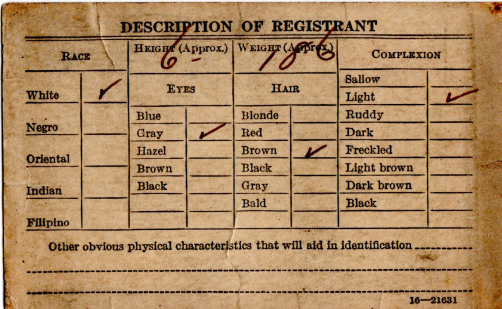 DESCRIPTION OF REGISTRANT
RACE HEIGHT (Approx.) 6- WEIGHT (Approx.) 186 COMPLEXION
White ✓
Negro
Oriental
Indian
Filipino
EYES
Blue
Gray ✓
Hazel
Brown
Black
HAIR
Blonde
Red
Brown ✓
Black
Gray
Bald
Sallow
Light ✓
Ruddy
Dark
Freckled
Light brown
Dark brown
Black
Other obvious physical characteristics that will aid in identification
16—21631